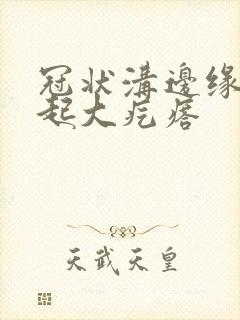 冠状溝邊缘
起大疙瘩
天武天皇